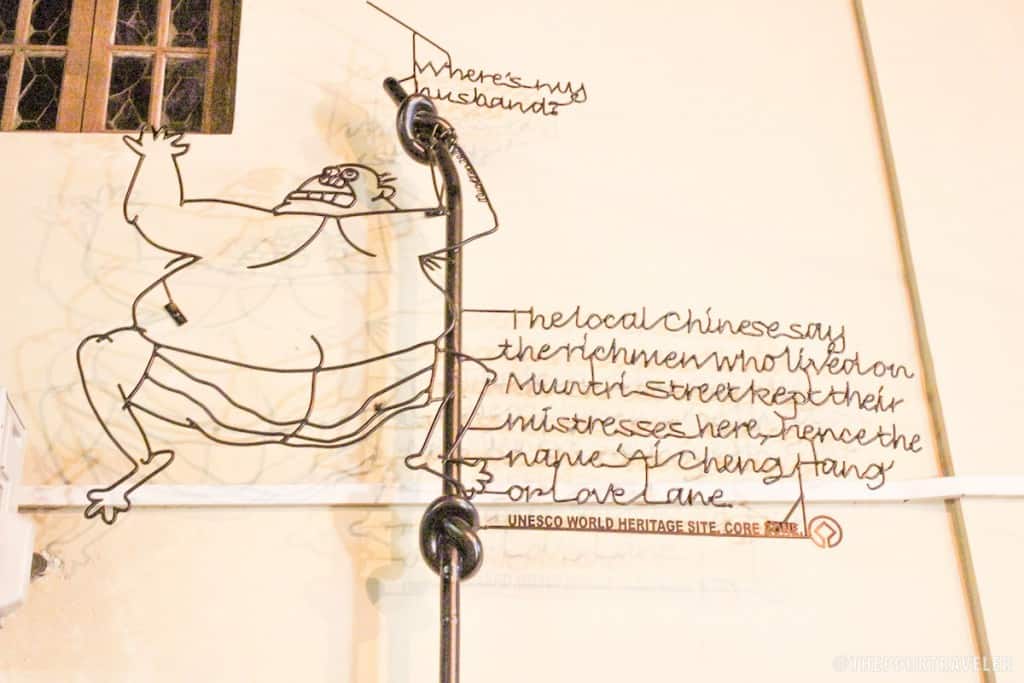 Where's my
husband?
The local Chinese say
the rich men who lived on
Muntri Street kept their
mistresses here, hence the
name 'Ai Cheng Hang'
or Love Lane.
UNESCO WORLD HERITAGE SITE, CORE ZONE.